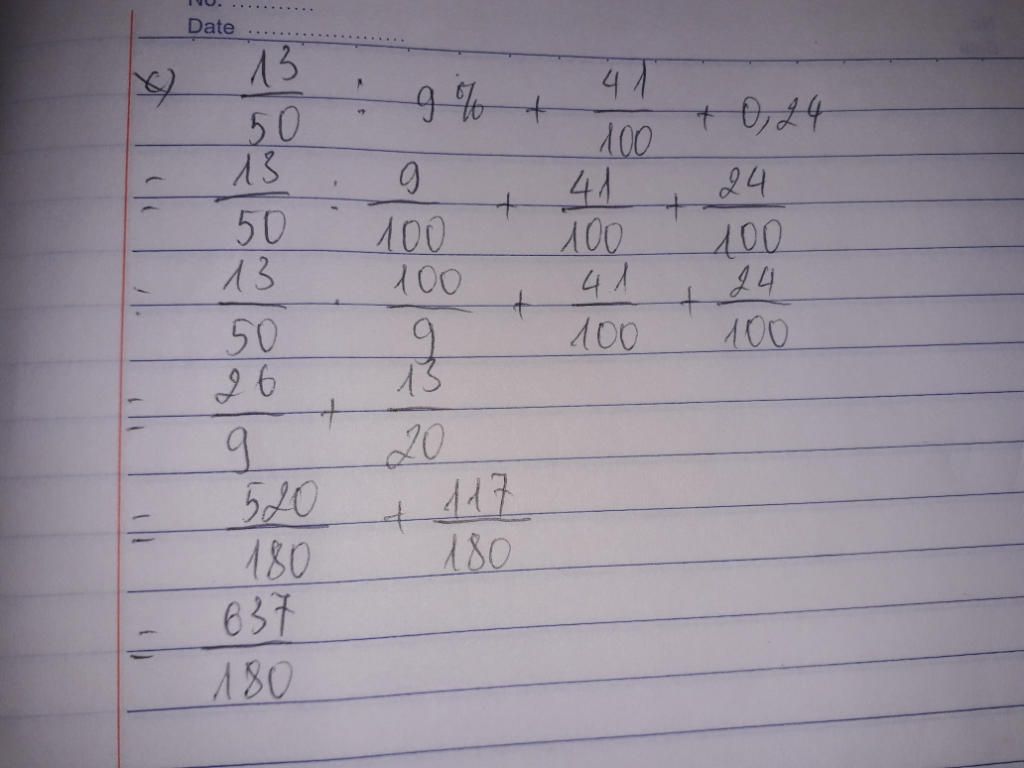 No. ............
Date ........................
c) 13/50 : 9% + 41/100 + 0,24
= 13/50 : 9/100 + 41/100 + 24/100
= 13/50 . 100/9 + 41/100 + 24/100
= 26/9 + 13/20
= 520/180 + 117/180
= 637/180